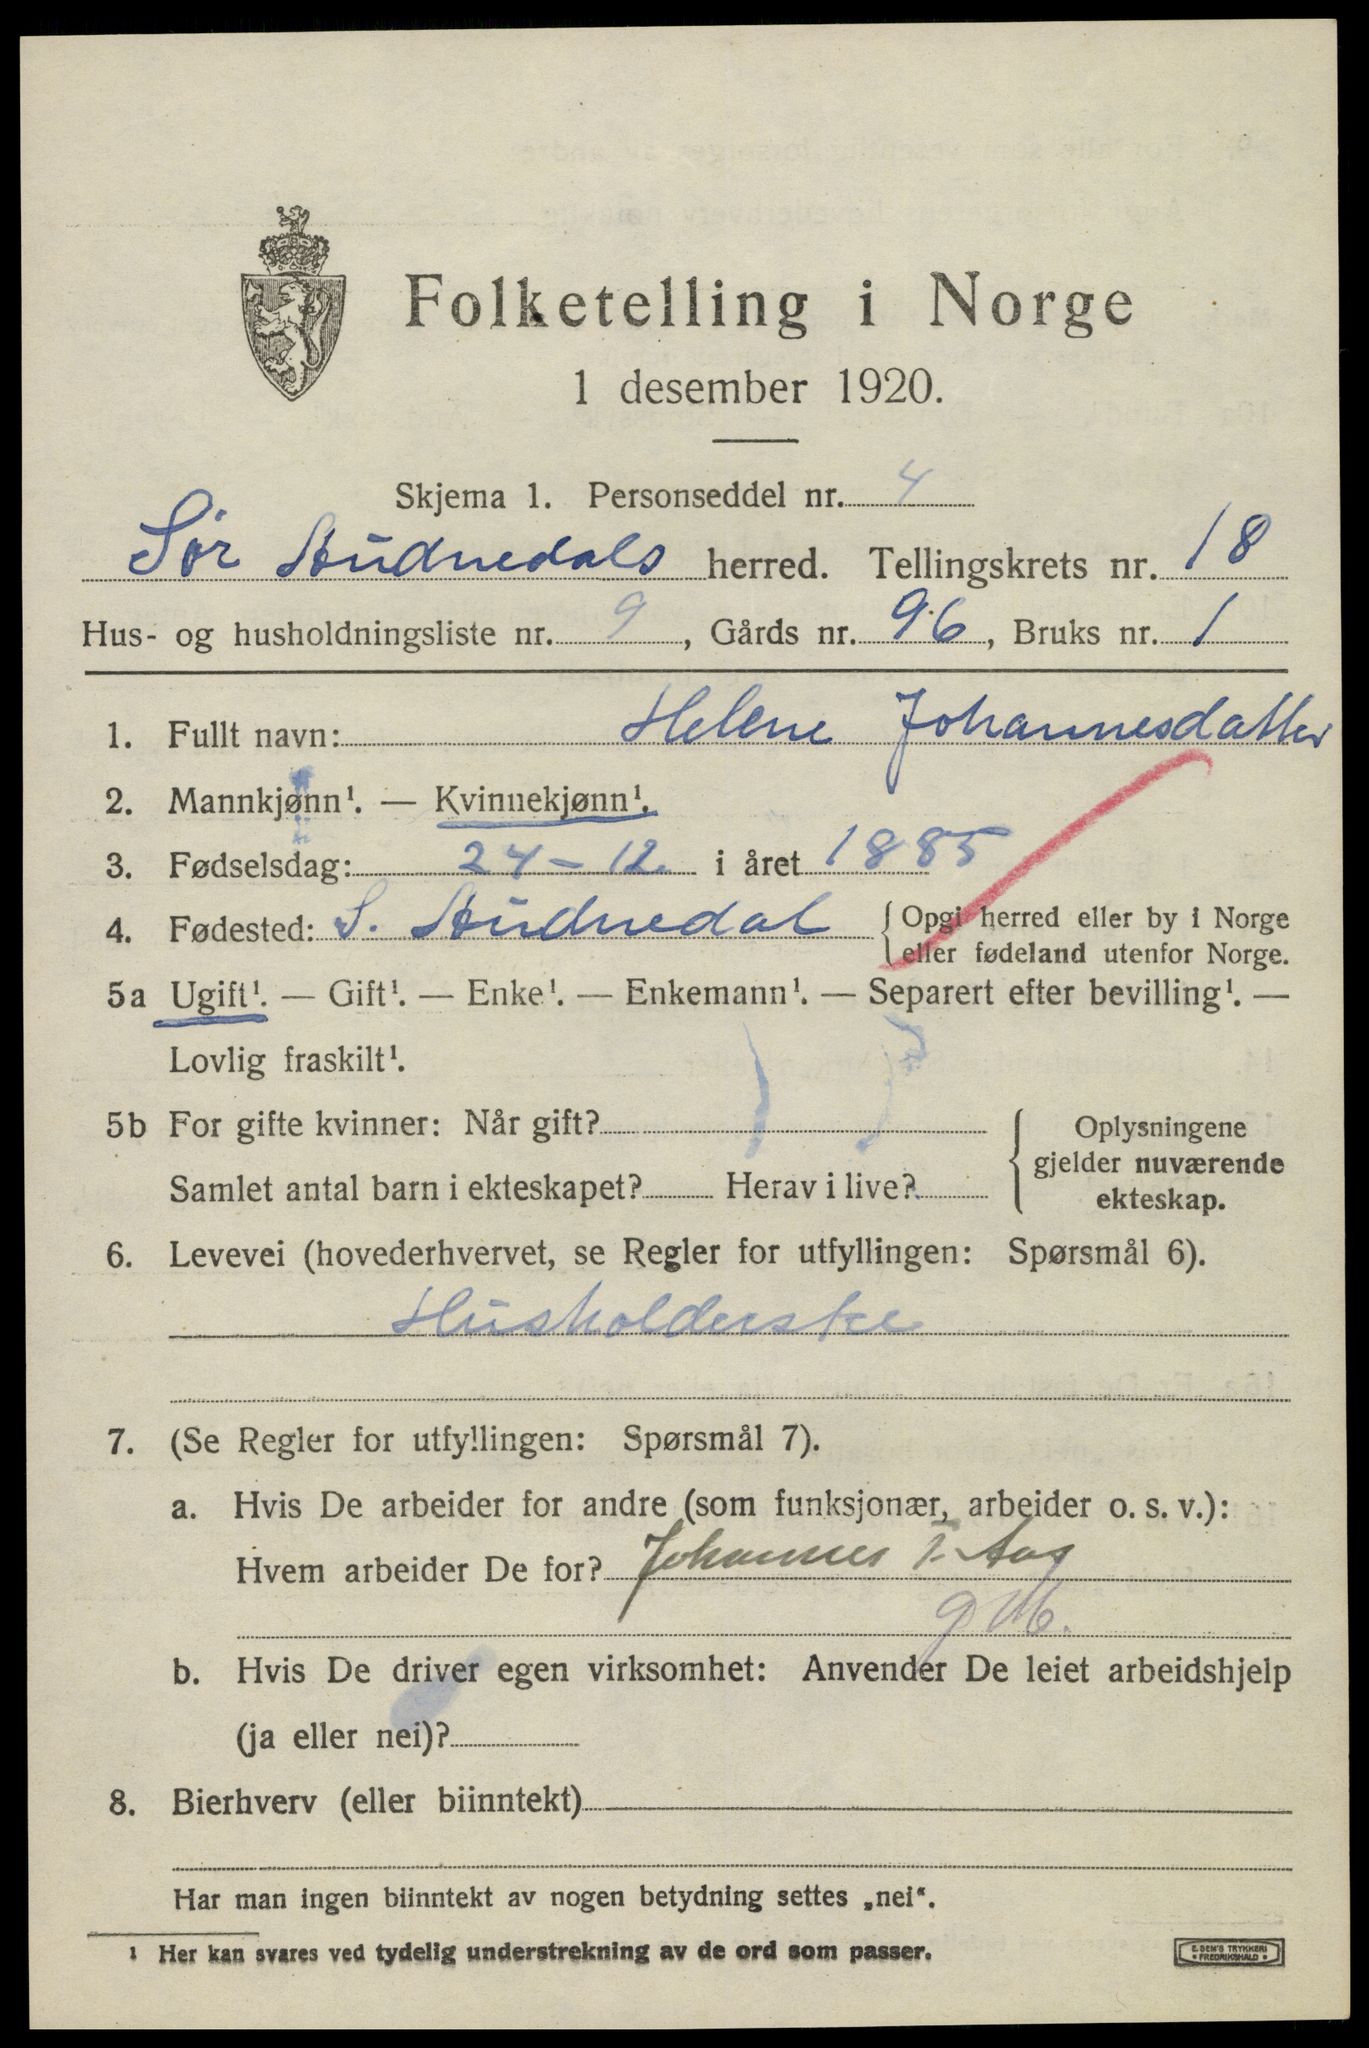 Folketelling i Norge
1 desember 1920.
Skjema 1. Personseddel nr. 4
Sør Audnedals herred. Tellingskrets nr. 18
Hus- og husholdningsliste nr. 9, Gårds nr. 96, Bruks nr. 1
1. Fullt navn: Helene Johannesdatter
2. Mannkjønn¹. — Kvinnekjønn¹.
3. Fødselsdag: 24 - 12 i året 1885
4. Fødested: S. Audnedal { Opgi herred eller by i Norge
eller fødeland utenfor Norge.
5a Ugift¹. — Gift¹. — Enke¹. — Enkemann¹. — Separert efter bevilling¹. —
Lovlig fraskilt¹.
5b For gifte kvinner: Når gift?
Samlet antal barn i ekteskapet? Herav i live?
Oplysningene
gjelder nuværende
ekteskap.
6. Levevei (hovederhvervet, se Regler for utfyllingen: Spørsmål 6).
Husholderske
7. (Se Regler for utfyllingen: Spørsmål 7).
a. Hvis De arbeider for andre (som funksjonær, arbeider o. s. v.):
Hvem arbeider De for? Johannes T. Aas
b. Hvis De driver egen virksomhet: Anvender De leiet arbeidshjelp
(ja eller nei)?
8. Bierhverv (eller biinntekt)
Har man ingen biinntekt av nogen betydning settes „nei“.
1 Her kan svares ved tydelig understrekning av de ord som passer.
E. SEM'S TRYKKERI
* FREDRIKSHALD *